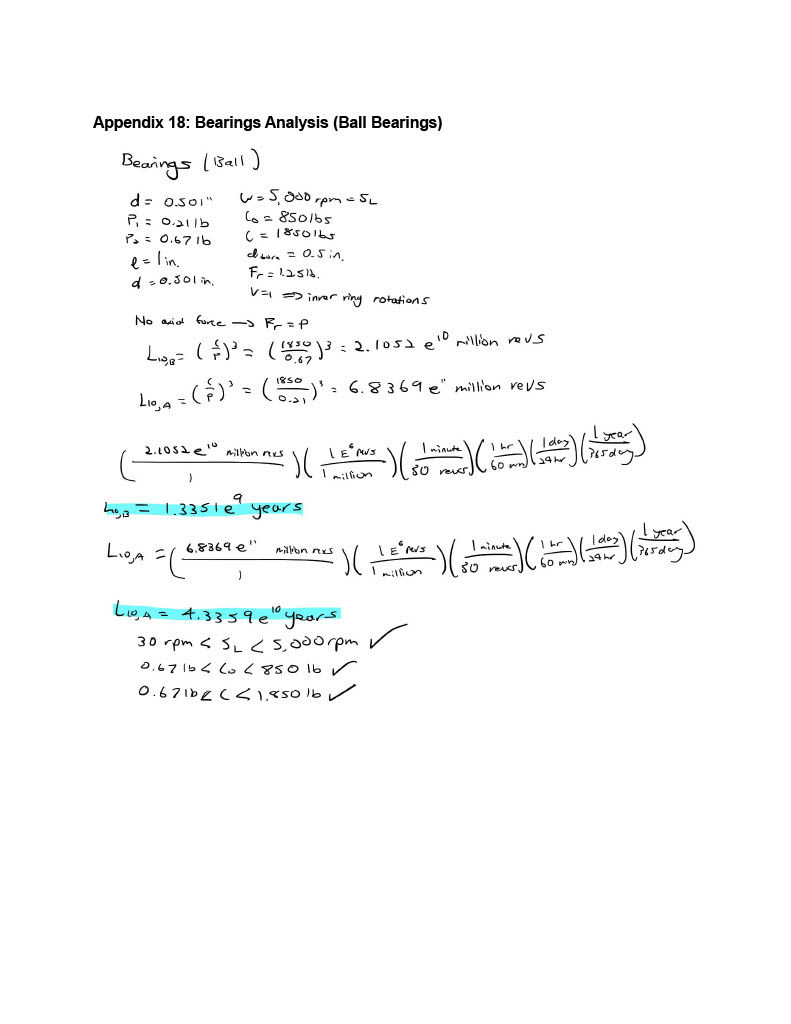 Appendix 18: Bearings Analysis (Ball Bearings)
Bearings (Ball)
d = 0.501"
P₁ = 0.21 lb
P₂ = 0.67 lb
l = 1 in.
d = 0.501 in.
ω = 5,000 rpm = SL
C₀ = 850 lbs
C = 1850 lbs
d bore = 0.5 in.
Fr = 1.25 lb.
V=1 => inner ring rotations
No axial force → Fr = P
L10,B = (C/P)³ = (1850/0.67)³ = 2.1052 e¹⁰ million revs
L10,A = (C/P)³ = (1850/0.21)³ = 6.8369 e¹¹ million revs
(2.1052 e¹⁰ million revs/1)(1 E⁶ revs/1 million)(1 minute/30 revs)(1 hr/60 min)(1 day/24 hr)(1 year/365 day)
L10,B = 1.3351 e⁹ years
L10,A = (6.8369 e¹¹ million revs/1)(1 E⁶ revs/1 million)(1 minute/30 revs)(1 hr/60 min)(1 day/24 hr)(1 year/365 day)
L10,A = 4.3359 e¹⁰ years
30 rpm < SL < 5,000 rpm ✓
0.67 lb < C₀ < 850 lb ✓
0.67 lb < C < 1,850 lb ✓